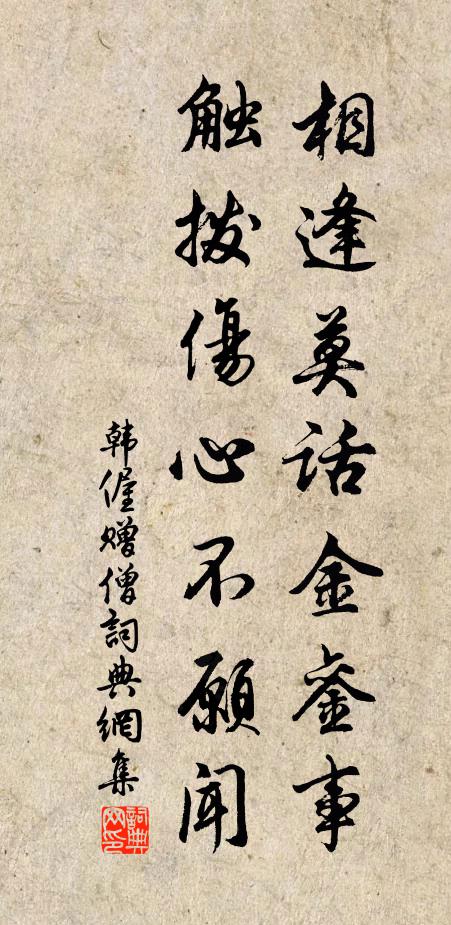 相逢莫话金銮事
触拨傷心不願闻
韩偓赠僧詞典網集
詞典网印